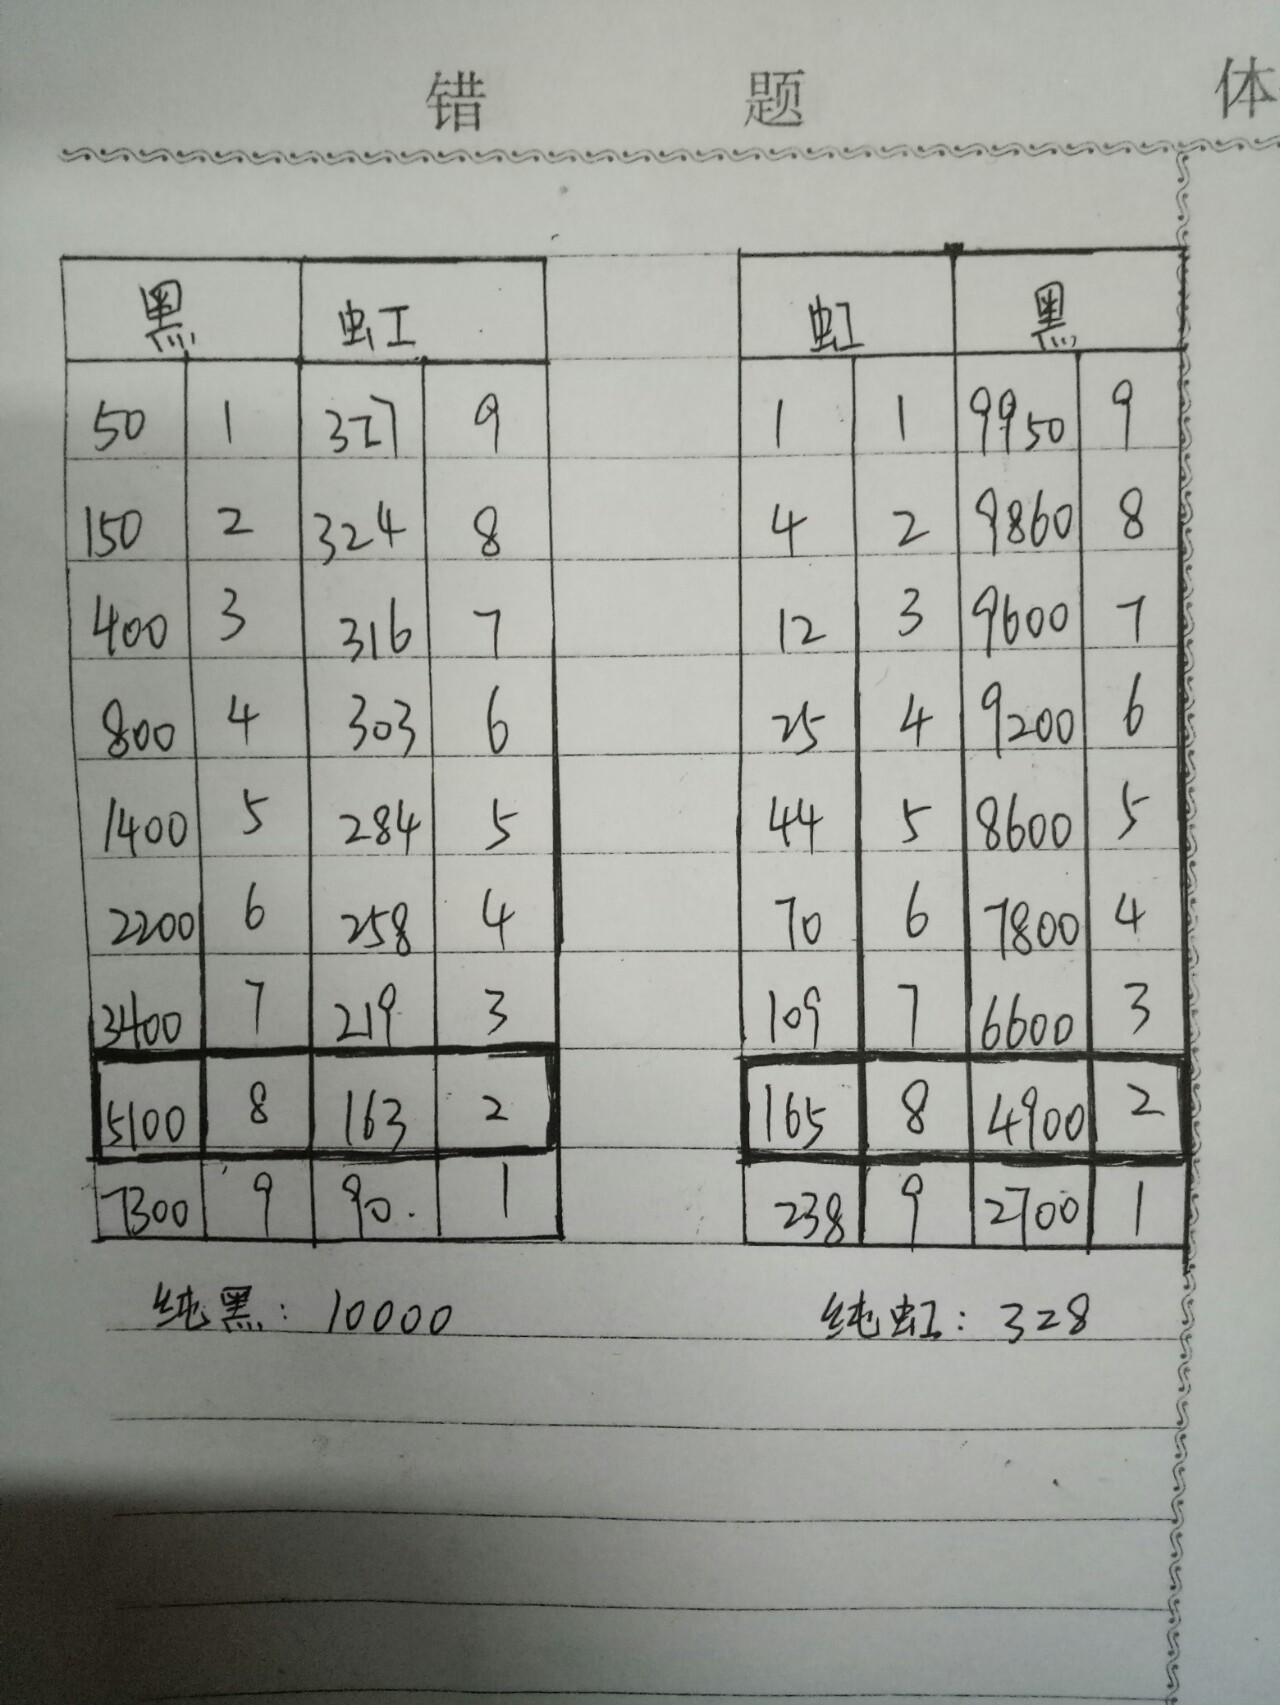 错 题 体
黑 虹 虹 黑
50 1 327 9 1 1 9950 9
150 2 324 8 4 2 9860 8
400 3 316 7 12 3 9600 7
800 4 303 6 25 4 9200 6
1400 5 284 5 44 5 8600 5
2200 6 258 4 70 6 7800 4
3400 7 219 3 109 7 6600 3
5100 8 163 2 165 8 4900 2
7300 9 90. 1 238 9 2700 1
纯黑: 10000 纯虹: 328